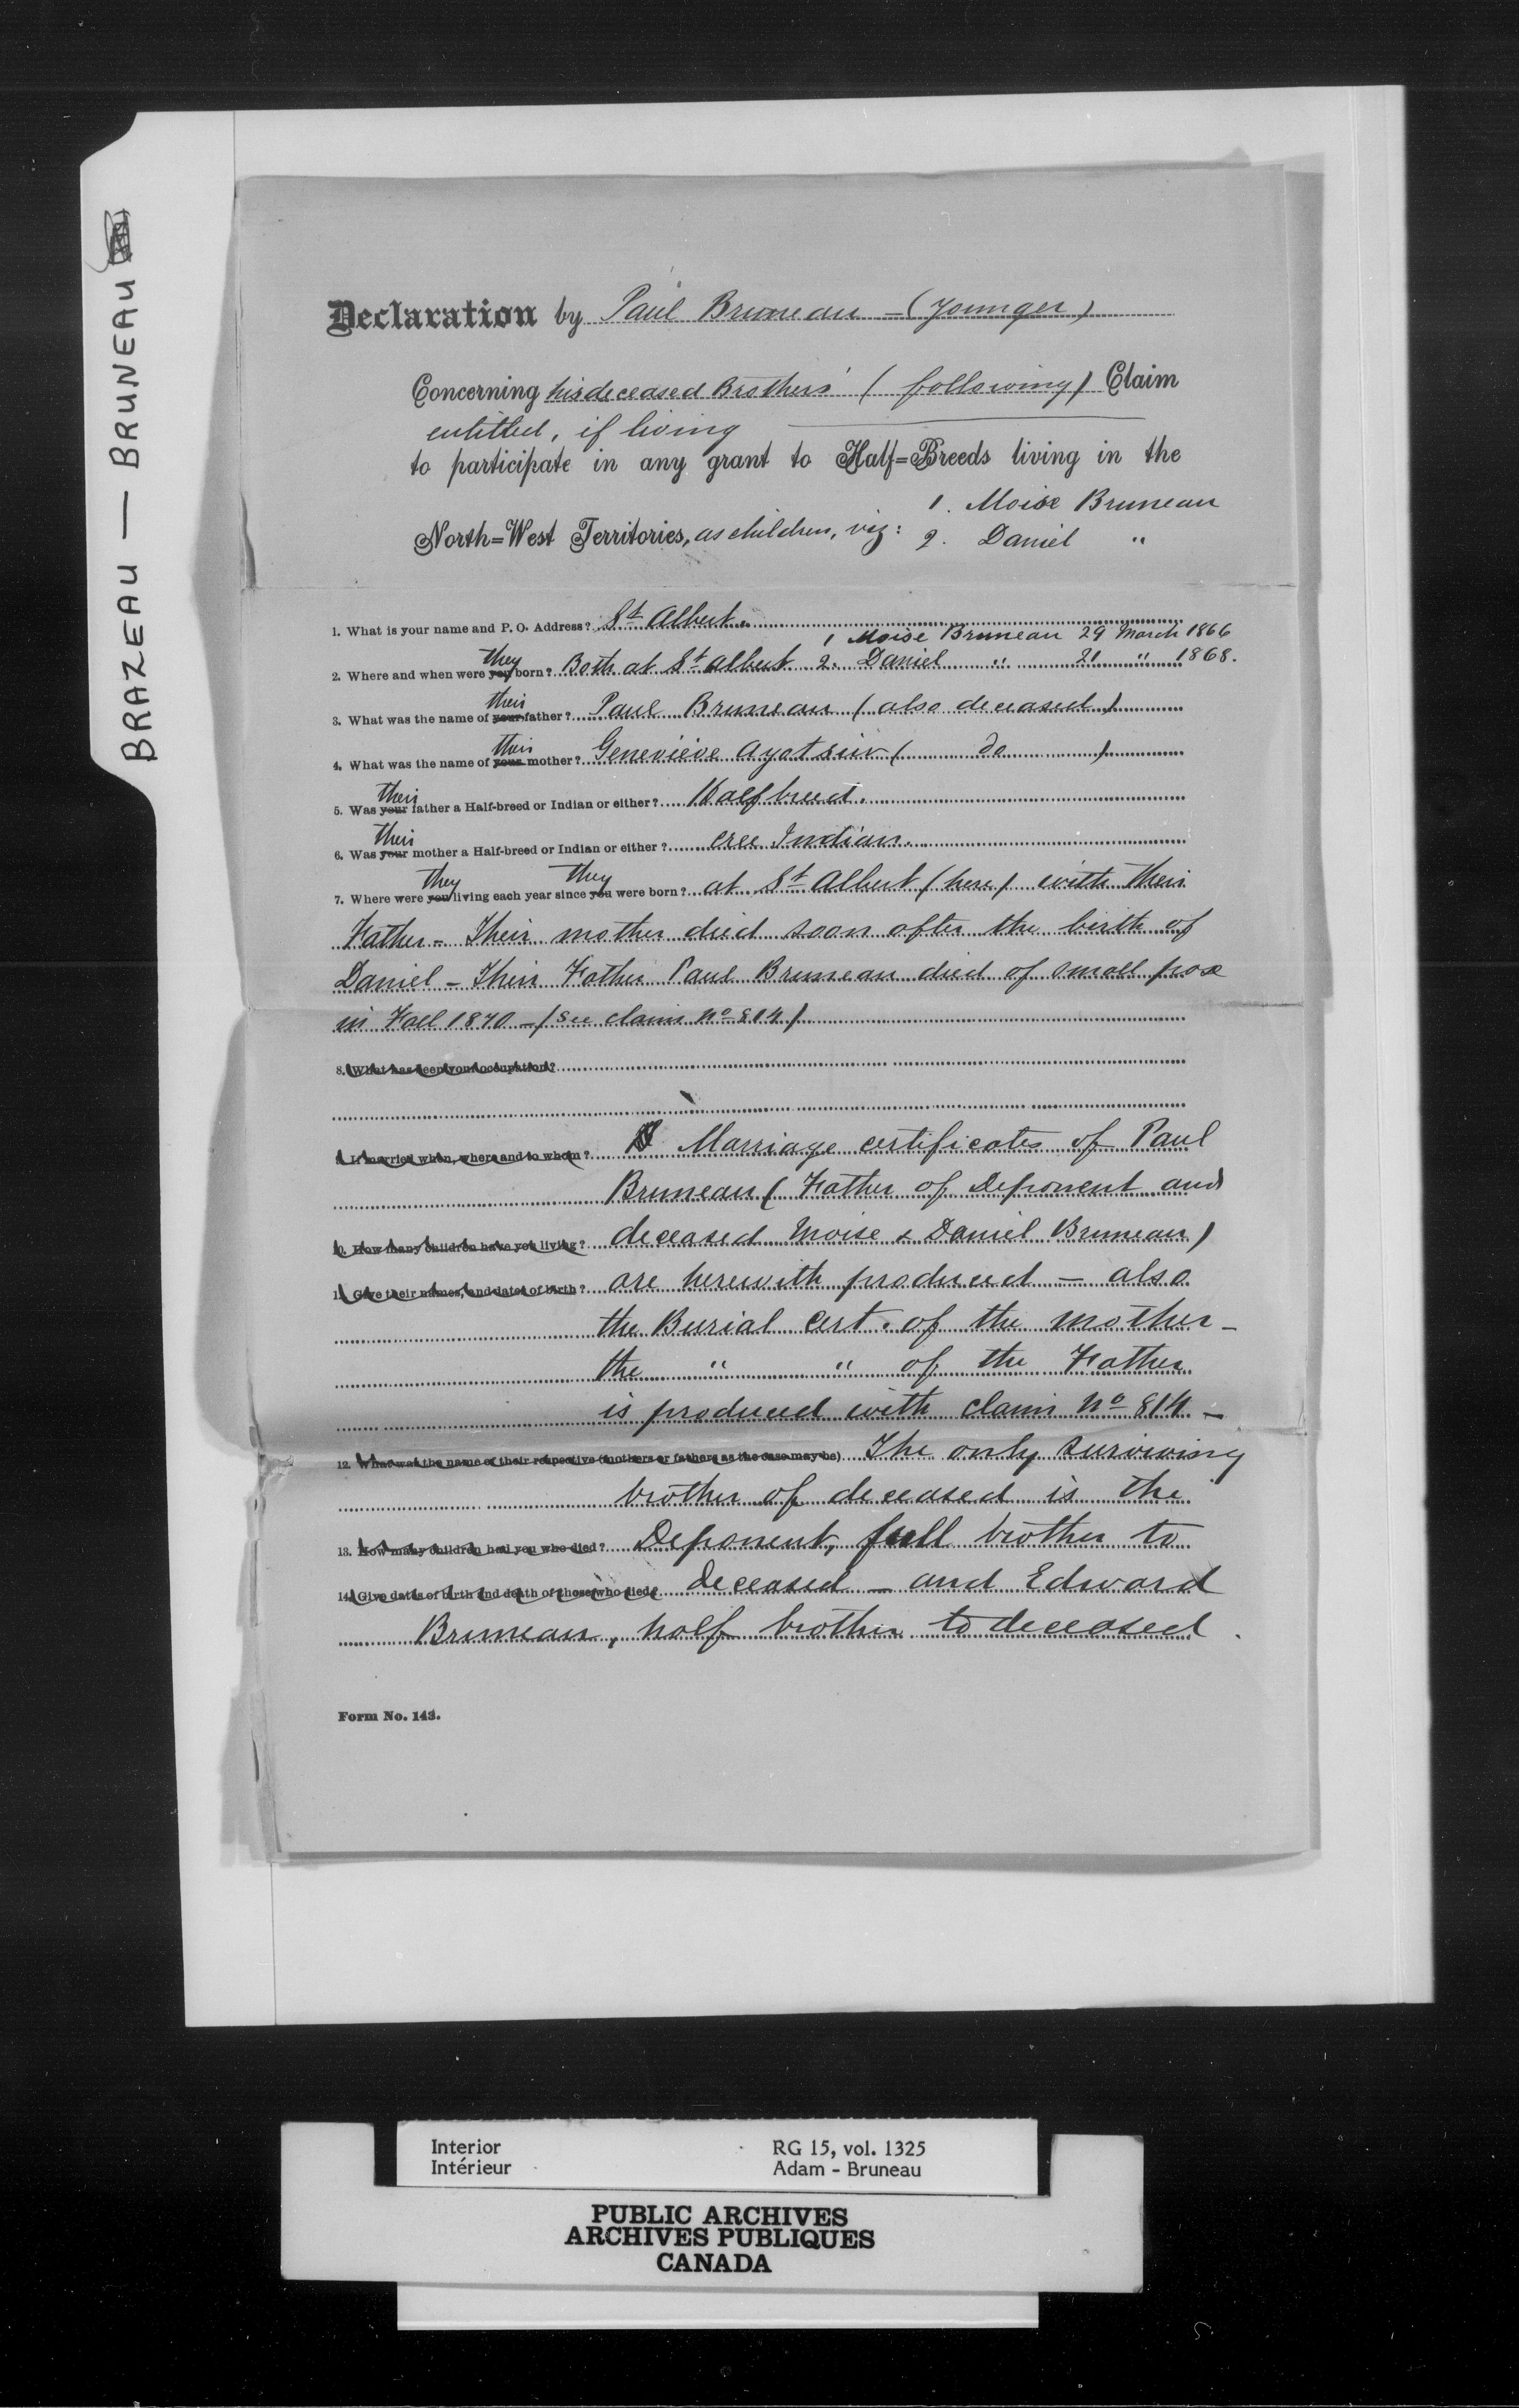 BRAZEAU — BRUNEAU
Declaration by Paul Bruneau - (younger)
Concerning his deceased Brothers' (following) Claim
entitled, if living
to participate in any grant to Half=Breeds living in the
1. Moise Bruneau
North=West Territories, as children, viz: 2. Daniel "
1. What is your name and P. O. Address? St Albert.
1 Moise Bruneau 29 March 1866
they
2. Where and when were you born? Both at St Albert 2. Daniel " 21 " 1868.
their
3. What was the name of your father? Paul Bruneau (also deceased)
their
4. What was the name of your mother? Geneviève Ayotsiw ( do )
their
5. Was your father a Half-breed or Indian or either? Halfbreed.
their
6. Was your mother a Half-breed or Indian or either? cree Indian.
they they
7. Where were you living each year since you were born? at St Albert (here) with their
Father - Their mother died soon after the birth of
Daniel - Their Father Paul Bruneau died of small pox
in Fall 1870 - (see claim No 814)
8. What has been your occupation?
9. If married when, where and to whom? Marriage certificates of Paul
Bruneau (Father of Deponent and
10. How many children have you living? deceased Moise & Daniel Bruneau)
11. Give their names, and dates of birth? are herewith produced - also
the Burial Cert. of the mother -
the " " of the Father
is produced with claim No 814 -
12. What was the name of their respective (mothers or fathers as the case may be) The only surviving
brother of deceased is the
13. How many children had you who died? Deponent, full brother to
14. Give dates of birth and death of those who died? deceased - and Edward
Bruneau, half brother to deceased.
Form No. 143.
Interior RG 15, vol. 1325
Intérieur Adam - Bruneau
PUBLIC ARCHIVES
ARCHIVES PUBLIQUES
CANADA